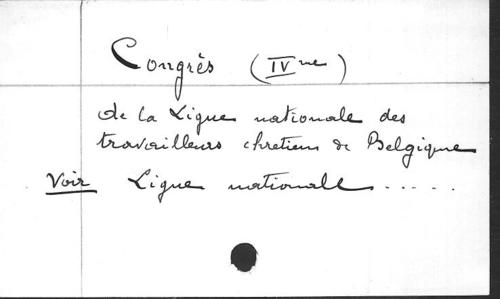 Congrès (IVme)
de la Ligue nationale des
travailleurs chretiens de Belgique
Voir Ligue nationale .....